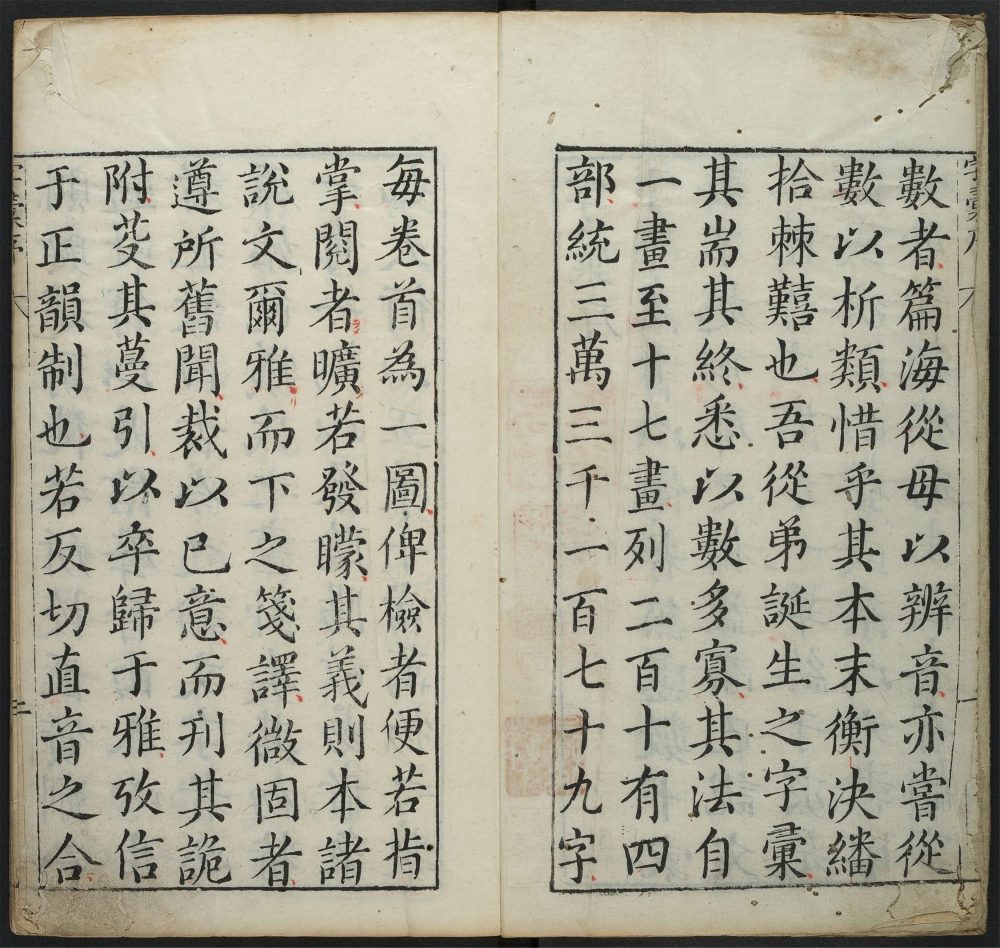 數者篇海從母以辨音亦嘗從
數以析類惜乎其本末衡決繙
拾棘囏也吾從弟誕生之字彙
其耑其終悉以數多寡其法自
一畫至十七畫列二百十有四
部統三萬三千一百七十九字
每卷首為一圖俾檢者便若指
掌閱者曠若發矇其義則本諸
說文爾雅而下之箋譯微固者
遵所舊聞裁以己意而刋其詭
附芟其蔓引以卒歸于雅攷信
于正韻制也若反切直音之合